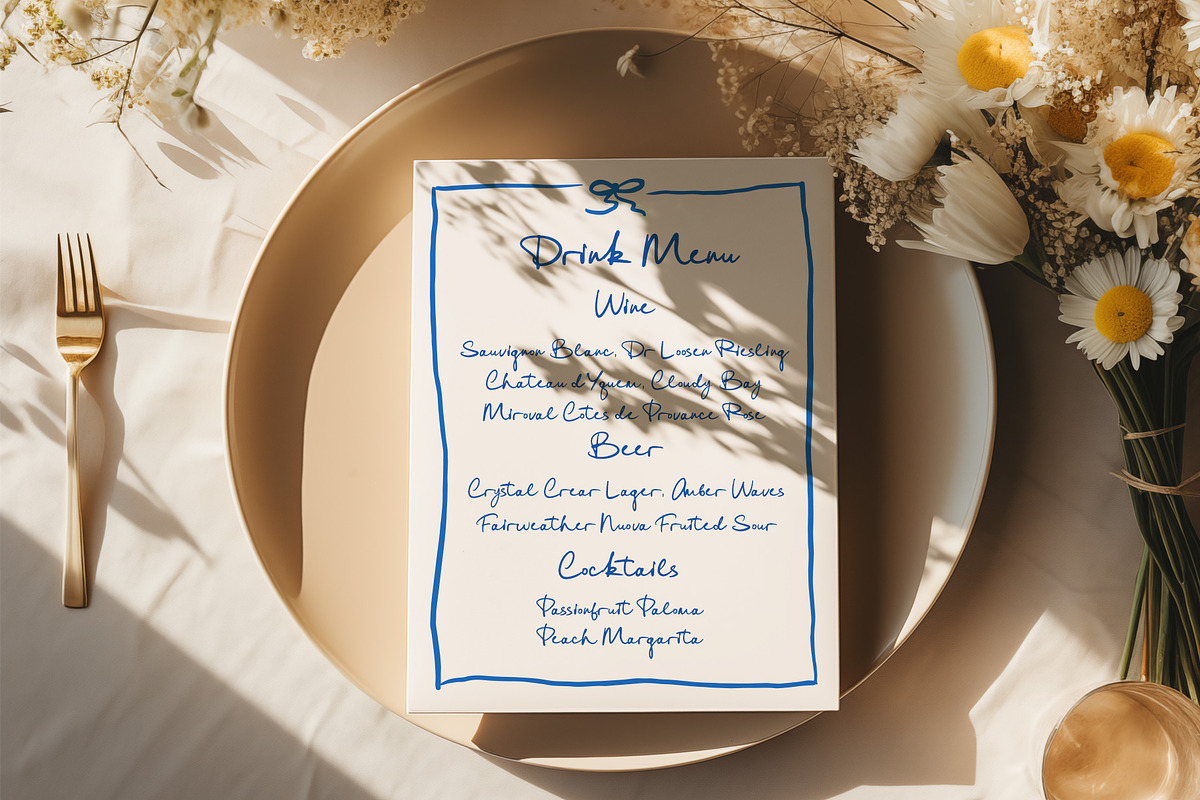 Drink Menu
Wine
Sauvignon Blanc, Dr Loosen Riesling
Chateau d'Yquem, Cloudy Bay
Miroval Cotes de Provance Rose
Beer
Crystal Crear Lager, Amber Waves
Fairweather Nuova Fruited Sour
Cocktails
Passionfruit Paloma
Peach Margarita